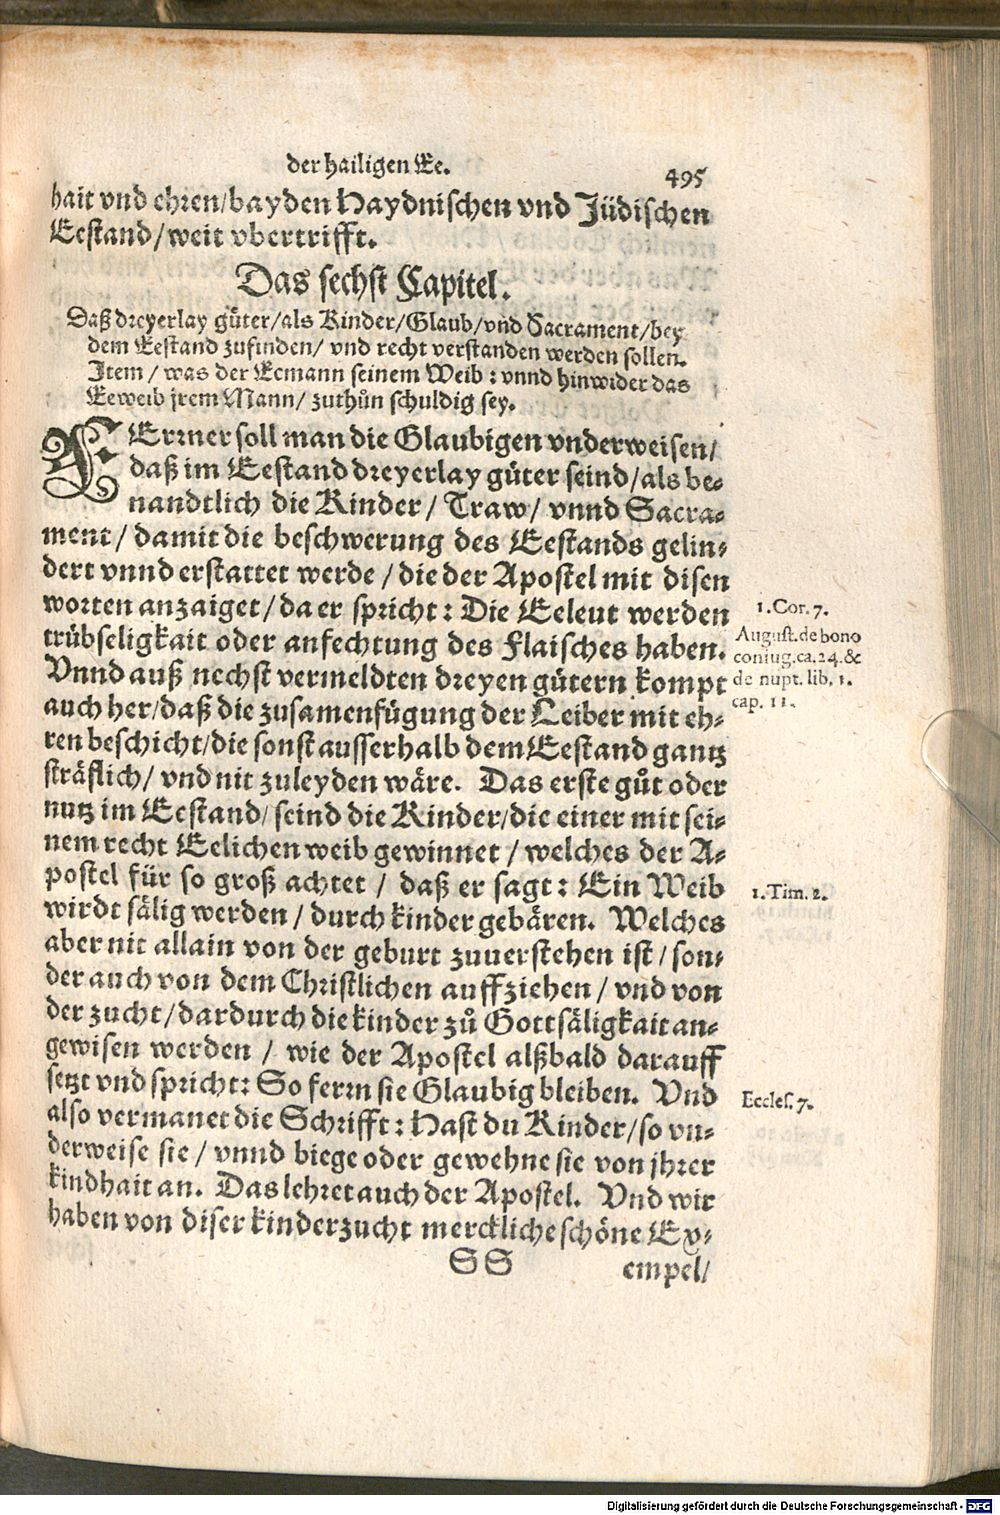 der hailigen Ee.
495
hait vnd ehren/bayden Haydnischen vnd Jüdischen
Eestand/weit vbertrifft.
Das sechst Capitel.
Daß dreyerlay güter/als Kinder/Glaub/vnd Sacrament/bey
dem Eestand zufinden/ vnd recht verstanden werden sollen.
Item / was der Eemann seinem Weib : vnnd hinwider das
Eeweib jrem Mann/ zuthün schuldig sey.
FErmer soll man die Glaubigen vnderweisen/
daß im Eestand dreyerlay güter seind/als be-
nandtlich die Kinder / Traw/ vnnd Sacra-
ment / damit die beschwerung des Eestands gelin-
dert vnnd erstattet werde / die der Apostel mit disen
worten anzaiget/da er spricht: Die Eeleut werden
trübseligkait oder anfechtung des Flaisches haben.
Vnnd auß nechst vermeldten dreyen gütern kompt
auch her/daß die zusamenfügung der Leiber mit eh-
ren beschicht/die sonst ausserhalb dem Eestand gantz
sträflich/ vnd nit zuleyden wäre. Das erste gůt oder
nutz im Eestand/ seind die Kinder/die einer mit sei-
nem recht Eelichen weib gewinnet / welches der A-
postel für so groß achtet / daß er sagt: Ein Weib
wirdt sälig werden / durch kinder gebären. Welches
aber nit allain von der geburt zuuerstehen ist / son-
der auch von dem Christlichen auffziehen / vnd von
der zucht/dardurch die kinder zů Gottsäligkait an-
gewisen werden / wie der Apostel alßbald darauff
setzt vnd spricht: So ferrn sie Glaubig bleiben. Vnd
also vermanet die Schrifft: Hast du Kinder/so vn-
derweise sie / vnnd biege oder gewehne sie von jhrer
kindhait an. Das lehret auch der Apostel. Vnd wir
haben von diser kinderzucht merckliche schöne Ex-
SS
empel/
1.Cor.7.
August.de bono
coniug.ca.24.&
de nupt. lib. 1.
cap. 11.
1.Tim.2.
Eccles.7.
Digitalisierung gefördert durch die Deutsche Forschungsgemeinschaft - DFG